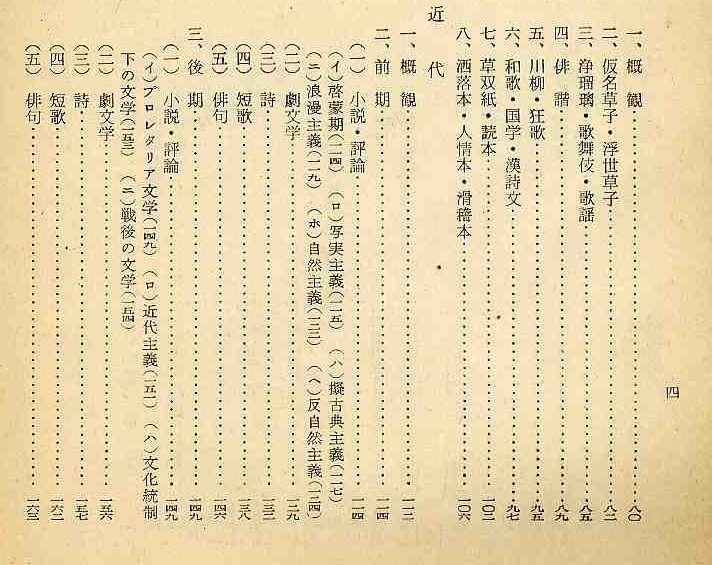 四
一、概観……八〇
二、仮名草子・浮世草子……八二
三、浄瑠璃・歌舞伎・歌謡……八五
四、俳諧……八九
五、川柳・狂歌……九五
六、和歌・国学・漢詩文……九七
七、草双紙・読本……一〇三
八、洒落本・人情本・滑稽本……一〇六
近代
一、概観……一一二
二、前期……一一四
(一)小説・評論……一一四
(イ)啓蒙期(一一四) (ロ)写実主義(一一五) (ハ)擬古典主義(一一七)
(ニ)浪漫主義(一一九) (ホ)自然主義(一二二) (ヘ)反自然主義(一二四)
(二)劇文学……一二九
(三)詩……一三二
(四)短歌……一三八
(五)俳句……一四六
三、後期……一四九
(一)小説・評論……一四九
(イ)プロレタリア文学(一四九) (ロ)近代主義(一五一) (ハ)文化統制
下の文学(一五三) (ニ)戦後の文学(一五四)
(二)劇文学……一五六
(三)詩……一五七
(四)短歌……一六一
(五)俳句……一六三